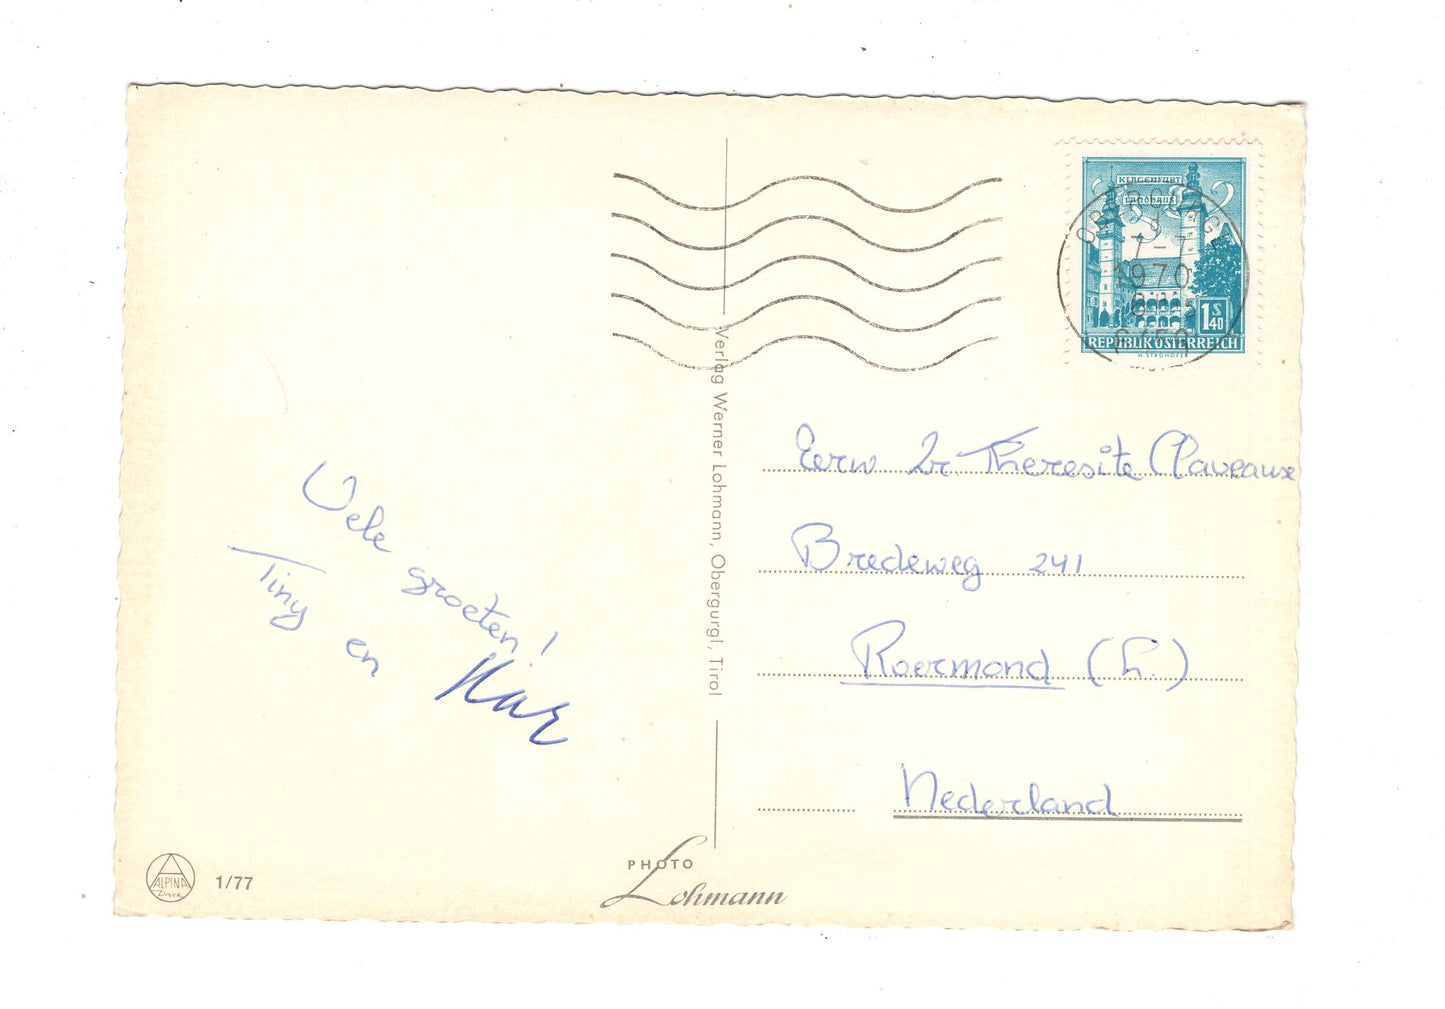 KLAGENFURT
Landhaus
OBERGURGL
7-7
1970
1 S 40
REPUBLIK ÖSTERREICH
H. STROHOFER
Verlag Werner Lohmann, Obergurgl, Tirol
Vele groeten!
Tiny en
Eerw Zr. Theresite Claveaux
Bredeweg 241
Roermond (L.)
Nederland
ALPINA
Druck
1/77
PHOTO
Lohmann